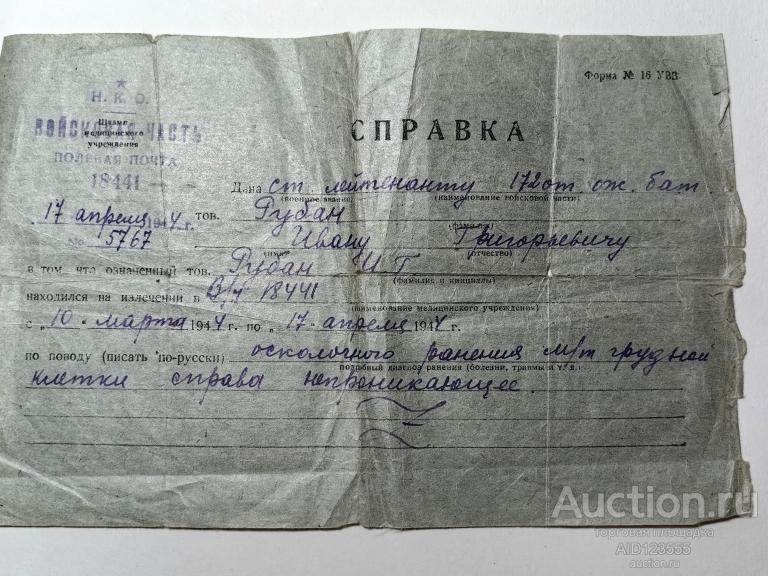 Форма № 16 УВЗ
Н. К. О.
Штамп
ВОЙСКОВАЯ ЧАСТЬ
медицинского
учреждения
ПОЛЕВАЯ ПОЧТА
18441
СПРАВКА
Дана ст. лейтенанту 172 от. ож. бат
(военное звание) (наименование войсковой части)
17 апреля 1944 г. тов. Рубан
(фамилия)
№ 15767 Ивану Григорьевичу
(имя) (отчество)
в том, что означенный тов. Рубан И. Г
(фамилия и инициалы)
находился на излечении в В/ч 18441
(наименование медицинского учреждения)
с „10 марта 1944 г. по „17 апреля 1944 г.
по поводу (писать по-русски) осколочного ранения м/т грудной
подробный диагноз ранения (болезни, травмы и т. д.)
клетки справа непроникающее.
Auction.ru
торговая площадка
AID123555
auction.ru